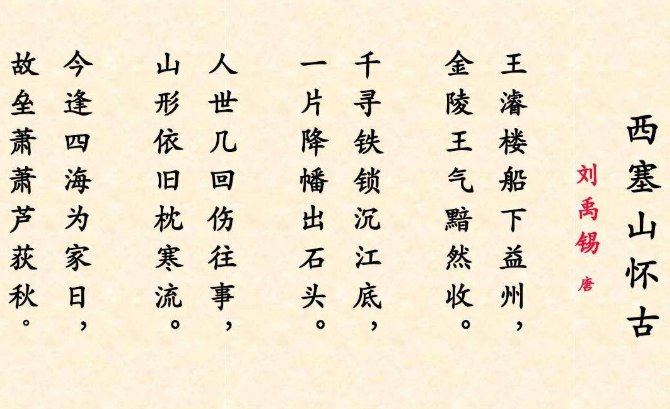 西塞山怀古
刘禹锡 唐
王濬楼船下益州，
金陵王气黯然收。
千寻铁锁沉江底，
一片降幡出石头。
人世几回伤往事，
山形依旧枕寒流。
今逢四海为家日，
故垒萧萧芦荻秋。